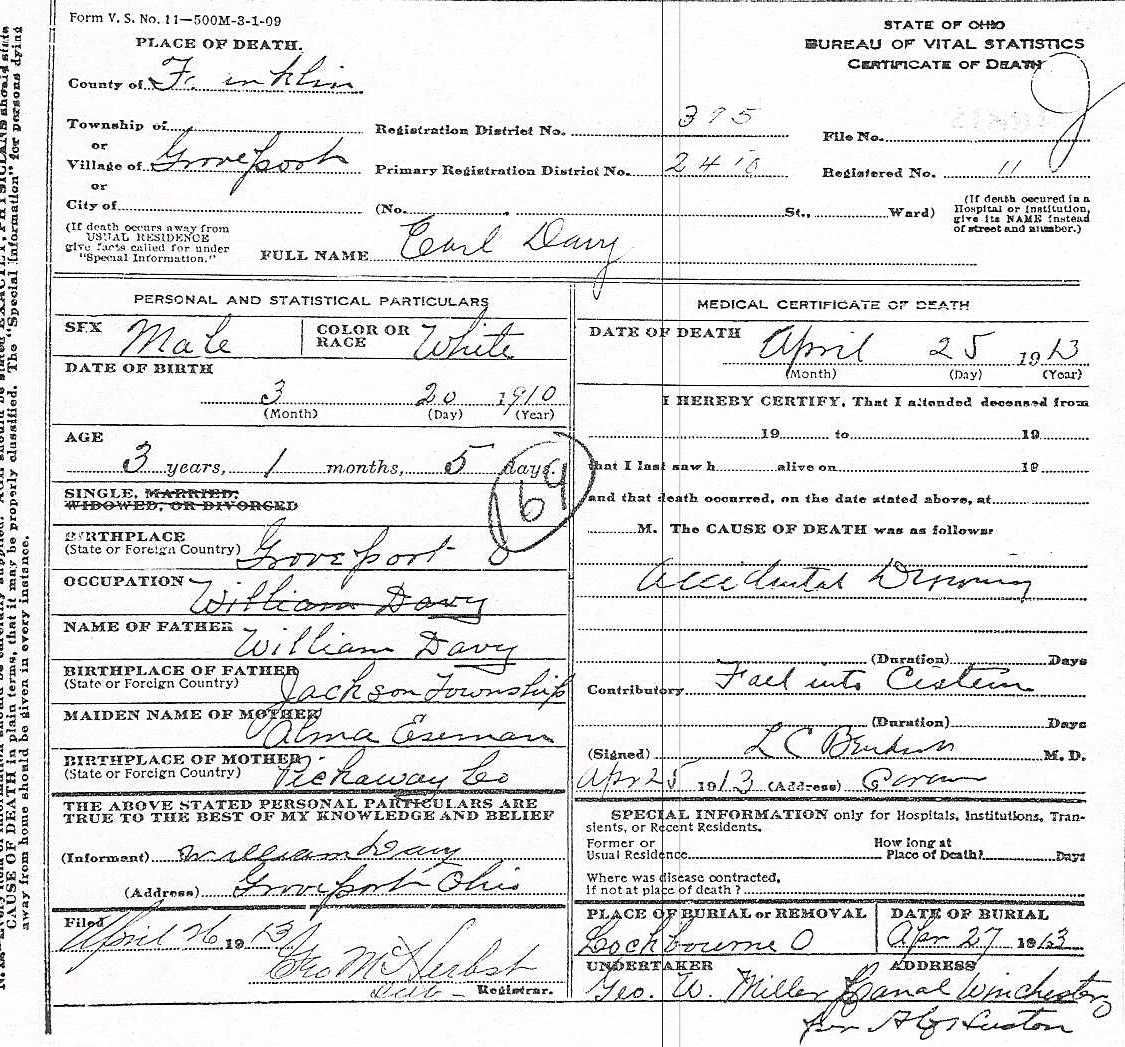 Form V. S. No. 11—500M-3-1-09
STATE OF OHIO
BUREAU OF VITAL STATISTICS
CERTIFICATE OF DEATH
PLACE OF DEATH.
County of Franklin
Township of
or
Village of Groveport
or
City of
Registration District No. 395
File No.
Primary Registration District No. 2410
Registered No. 11
(No. , St., Ward)
(If death occured in a
Hospital or institution,
give its NAME instead
of street and number.)
(If death occurs away from
USUAL RESIDENCE
give facts called for under
"Special Information."
FULL NAME Earl Davy
PERSONAL AND STATISTICAL PARTICULARS
SEX Male
COLOR OR
RACE White
DATE OF BIRTH
3 20 1910
(Month) (Day) (Year)
AGE
3 years, 1 months, 5 days.
169
SINGLE, MARRIED,
WIDOWED, OR DIVORCED
BIRTHPLACE
(State or Foreign Country) Groveport
OCCUPATION
William Davy
NAME OF FATHER
William Davy
BIRTHPLACE OF FATHER
(State or Foreign Country) Jackson Township
MAIDEN NAME OF MOTHER
Alma Eseman
BIRTHPLACE OF MOTHER
(State or Foreign Country) Pickaway Co
THE ABOVE STATED PERSONAL PARTICULARS ARE
TRUE TO THE BEST OF MY KNOWLEDGE AND BELIEF
(Informant) William Davy
(Address) Groveport Ohio
Filed
April 26 1913
Geo M Herbst
Registrar.
MEDICAL CERTIFICATE OF DEATH
DATE OF DEATH
April 25 1913
(Month) (Day) (Year)
I HEREBY CERTIFY, That I attended deceased from
19 to 19
that I last saw h alive on 19
and that death occurred, on the date stated above, at
M. The CAUSE OF DEATH was as follows:
Accidental Drowning
(Duration) Days
Contributory Fall into Cistern
(Duration) Days
(Signed) L C M. D.
Apr 25 1913 (Address)
SPECIAL INFORMATION only for Hospitals, Institutions, Tran-
sients, or Recent Residents.
Former or
Usual Residence
How long at
Place of Death? Days
Where was disease contracted,
if not at place of death?
PLACE OF BURIAL or REMOVAL
Lockbourne O
DATE OF BURIAL
Apr 27 1913
UNDERTAKER
Geo. W. Miller
ADDRESS
Canal Winchester
per
CAUSE OF DEATH in plain terms, that it may be properly classified. The "Special Information" for persons dying
away from home should be given in every instance.